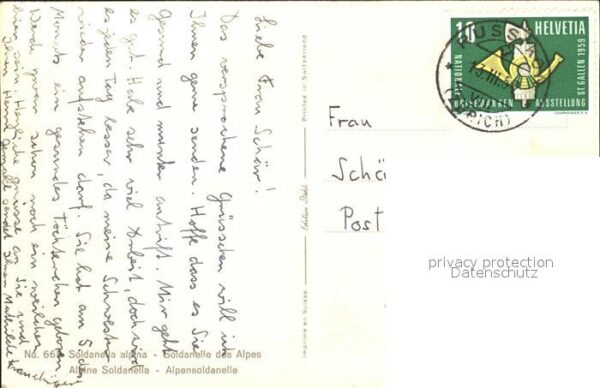 Liebe Frau Schär!
Das versprochene Grüsschen will ich
Ihnen gerne senden. Hoffe dass es Sie
Gesund und munter antrifft. Mir geht
es gut. Habe sehr viel Arbeit, doch wird
es jeden Tag besser, da meine Schwester
wieder aufstehen darf. Sie hat am 5. des
Monats ein gesundes Töchterchen geboren.
Werde gern schon noch ein weilchen
hier sein. Herzliche Grüsse an Sie und
Ihren Herrn Gemahl sendet Ihnen Mathilde
No. 66 Soldanella alpina - Soldanelle des Alpes
Alpine Soldanella - Alpensoldanelle
Imprimé en Suisse
Edition Stehli
Printed in Switzerland
10 HELVETIA
NATIONALE
BRIEFMARKEN AUSSTELLUNG
ST. GALLEN 1959
Frau
Schä
Post
privacy protection
Datenschutz